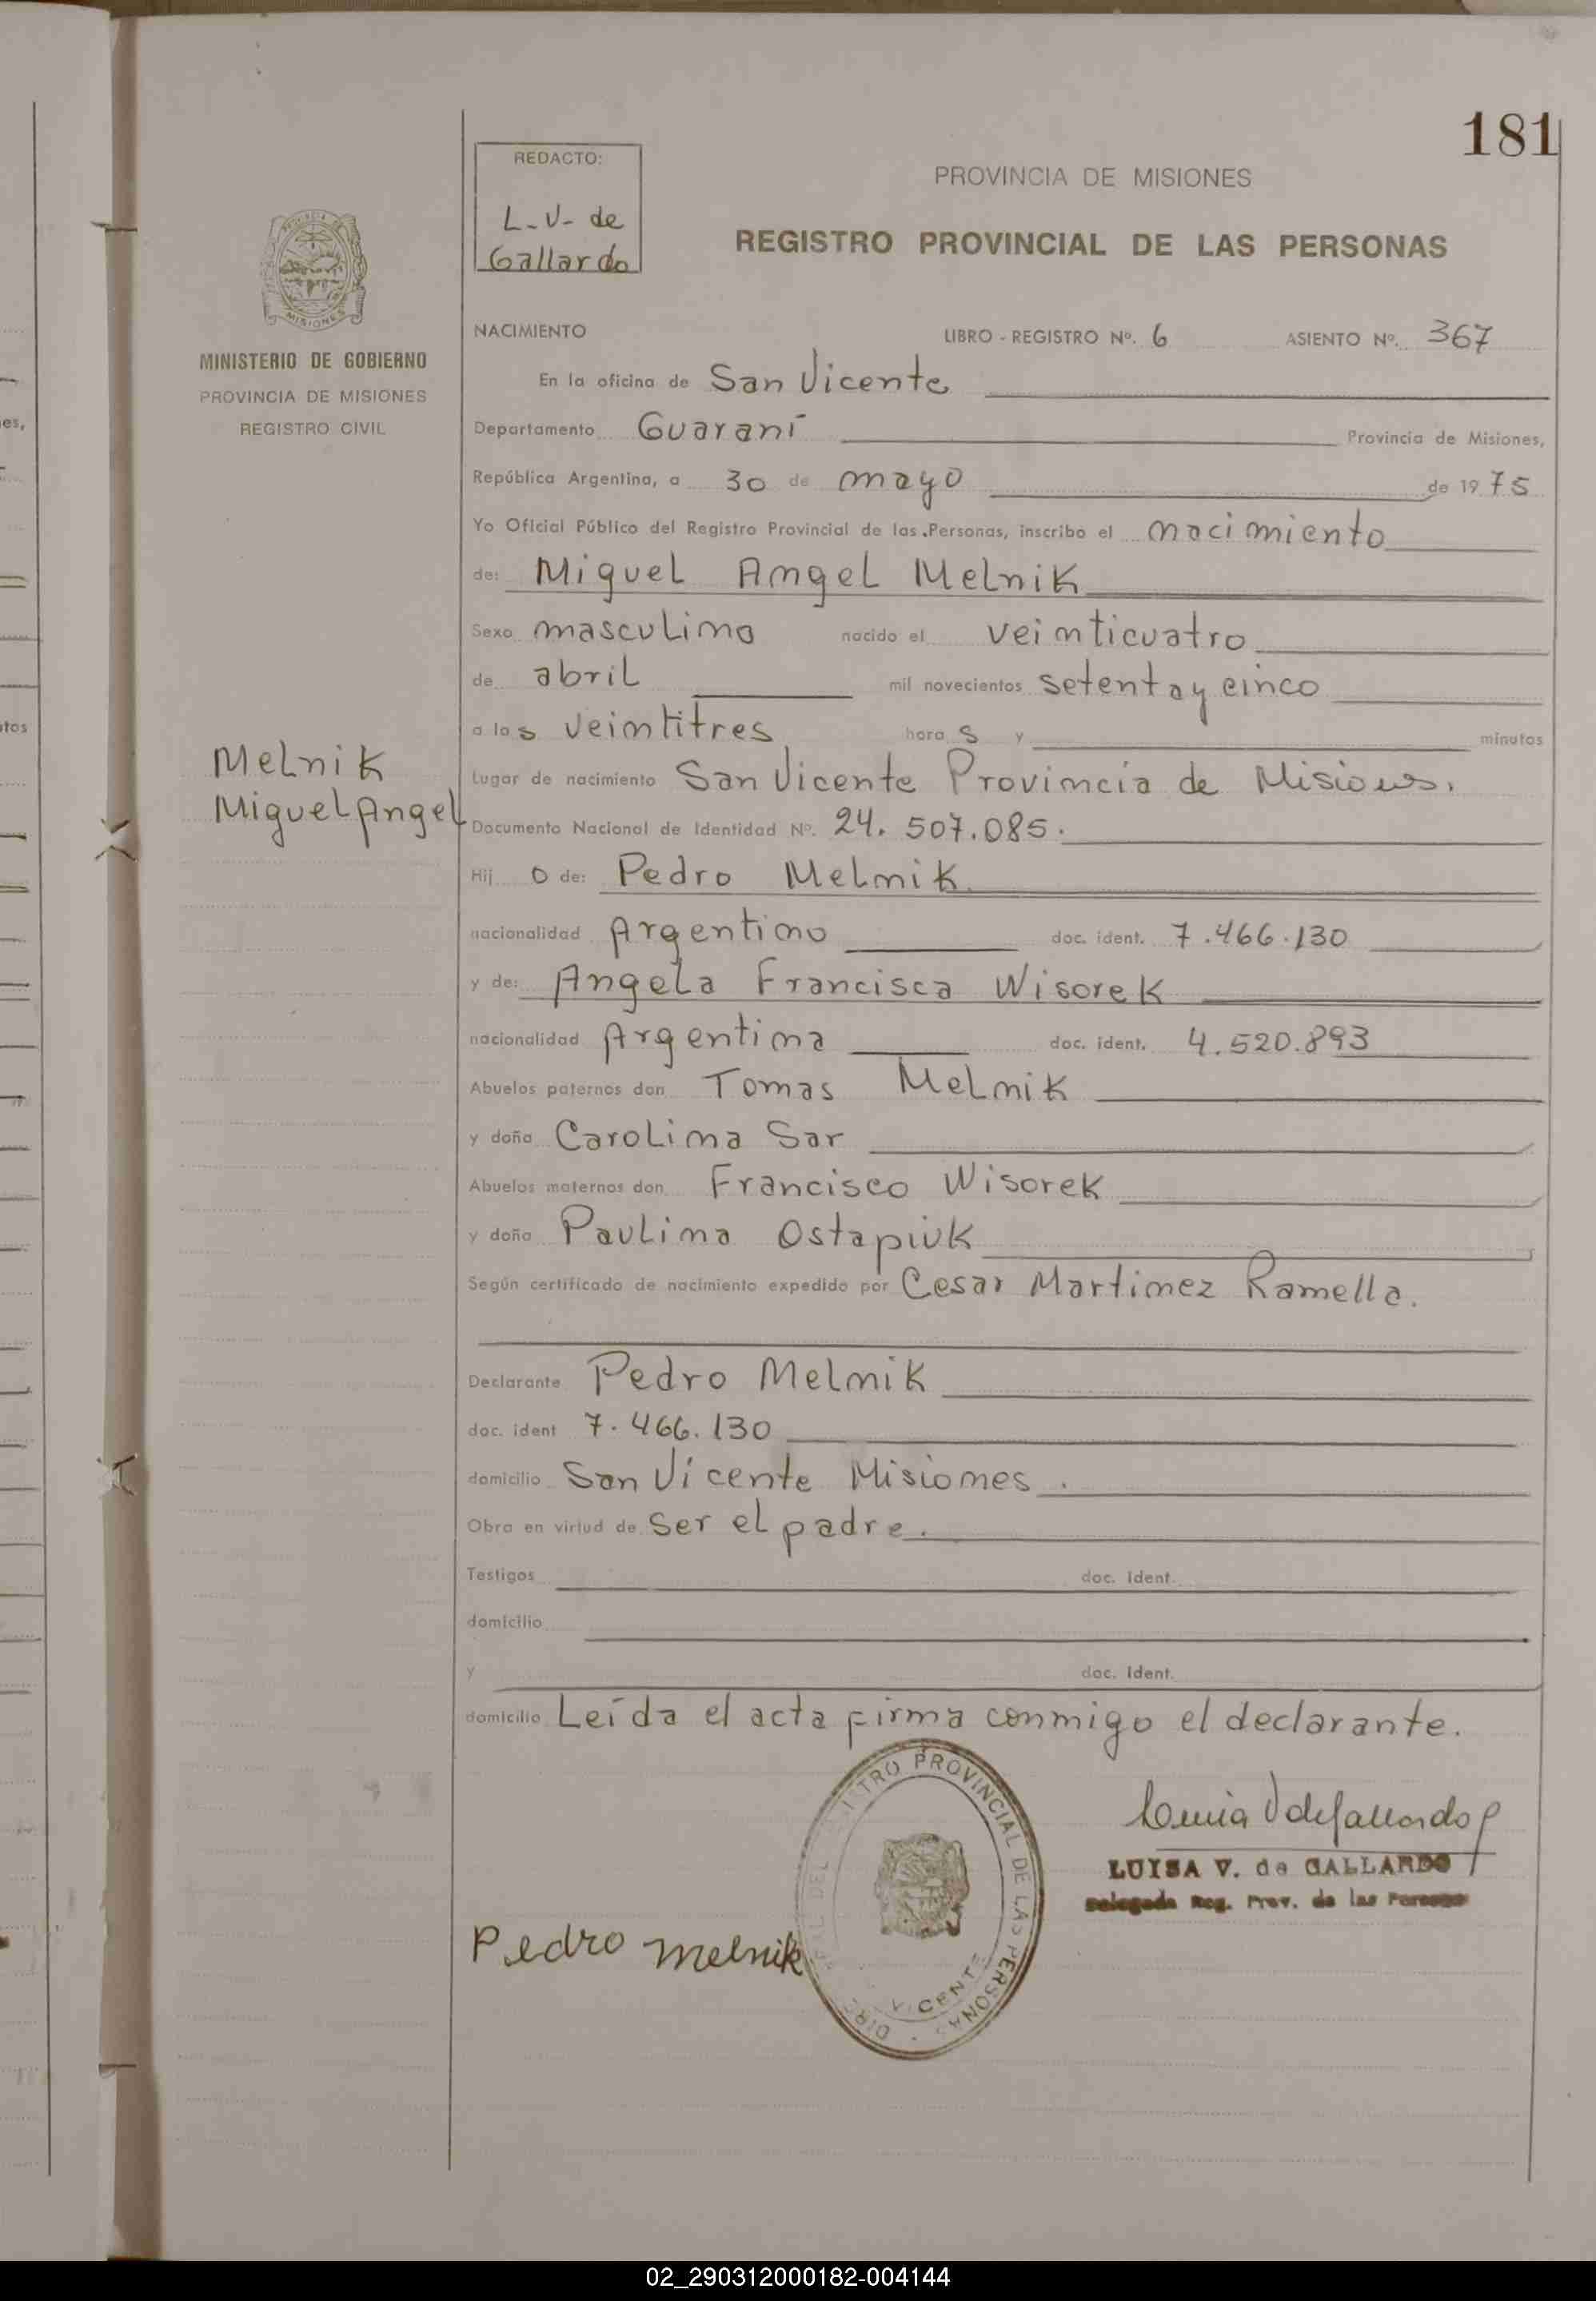 181
REDACTO:
L-V- de
Gallardo
PROVINCIA DE MISIONES
REGISTRO PROVINCIAL DE LAS PERSONAS
MISIONES
MINISTERIO DE GOBIERNO
PROVINCIA DE MISIONES
REGISTRO CIVIL
NACIMIENTO LIBRO - REGISTRO Nº. 6 ASIENTO Nº. 367
En la oficina de San Vicente
Departamento Guaraní Provincia de Misiones,
República Argentina, a 30 de mayo de 1975
Yo Oficial Público del Registro Provincial de las Personas, inscribo el nacimiento
de: Miguel Angel Melnik
Sexo masculino nacido el veinticuatro
de abril mil novecientos setenta y cinco
a las veintitres horas y minutos
Melnik
Miguel Angel
Lugar de nacimiento San Vicente Provincia de Misiones.
Documento Nacional de Identidad Nº. 24.507.085.
Hijo de: Pedro Melnik
nacionalidad Argentino doc. ident. 7.466.130
y de: Angela Francisca Wisorek
nacionalidad Argentina doc. ident. 4.520.893
Abuelos paternos don Tomas Melnik
y doña Carolina Sar
Abuelos maternos don Francisco Wisorek
y doña Paulina Ostapiuk
Según certificado de nacimiento expedido por Cesar Martinez Ramella.
Declarante Pedro Melnik
doc. ident 7.466.130
domicilio San Vicente Misiones.
Obra en virtud de ser el padre.
Testigos doc. ident.
domicilio
y doc. ident.
domicilio Leída el acta firma conmigo el declarante.
PROVINCIAL DE LAS PERSONAS
VICENTE
LUISA V. de GALLARDO
Delegada Reg. Prov. de las Personas
Pedro Melnik
02_290312000182-004144